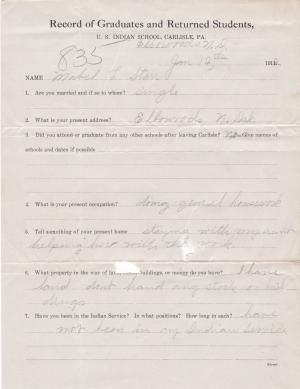 Record of Graduates and Returned Students,
U. S. INDIAN SCHOOL, CARLISLE, PA.
835
Elbowoods N. D.
Jan 12th 191
NAME Mabel L. Starr
1. Are you married and if so to whom? Single
2. What is your present address? Elbowoods, N. Dak
3. Did you attend or graduate from any other schools after leaving Carlisle? No Give names of
schools and dates if possible
4. What is your present occupation? doing general housework
5. Tell something of your present home staying with my aunt
helping her with the work
6. What property in the way of land, buildings, or money do you have? I have
land dont have any stock or
7. Have you been in the Indian Service? In what positions? How long in each? have
not been in any Indian Service